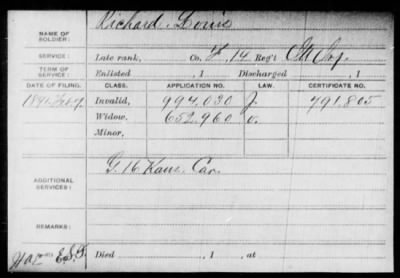 NAME OF SOLDIER: Richard, Louis
SERVICE: Late rank, Co. F, 14 Reg't Inf.
TERM OF SERVICE: Enlisted , 1 Discharged , 1
DATE OF FILING. CLASS. APPLICATION NO. LAW. CERTIFICATE NO.
Invalid, 994.030 J. 791.805
Widow, 652.960 O.
Minor,
ADDITIONAL SERVICES: G. 16 Kans. Cav.
REMARKS:
Died , 1 , at